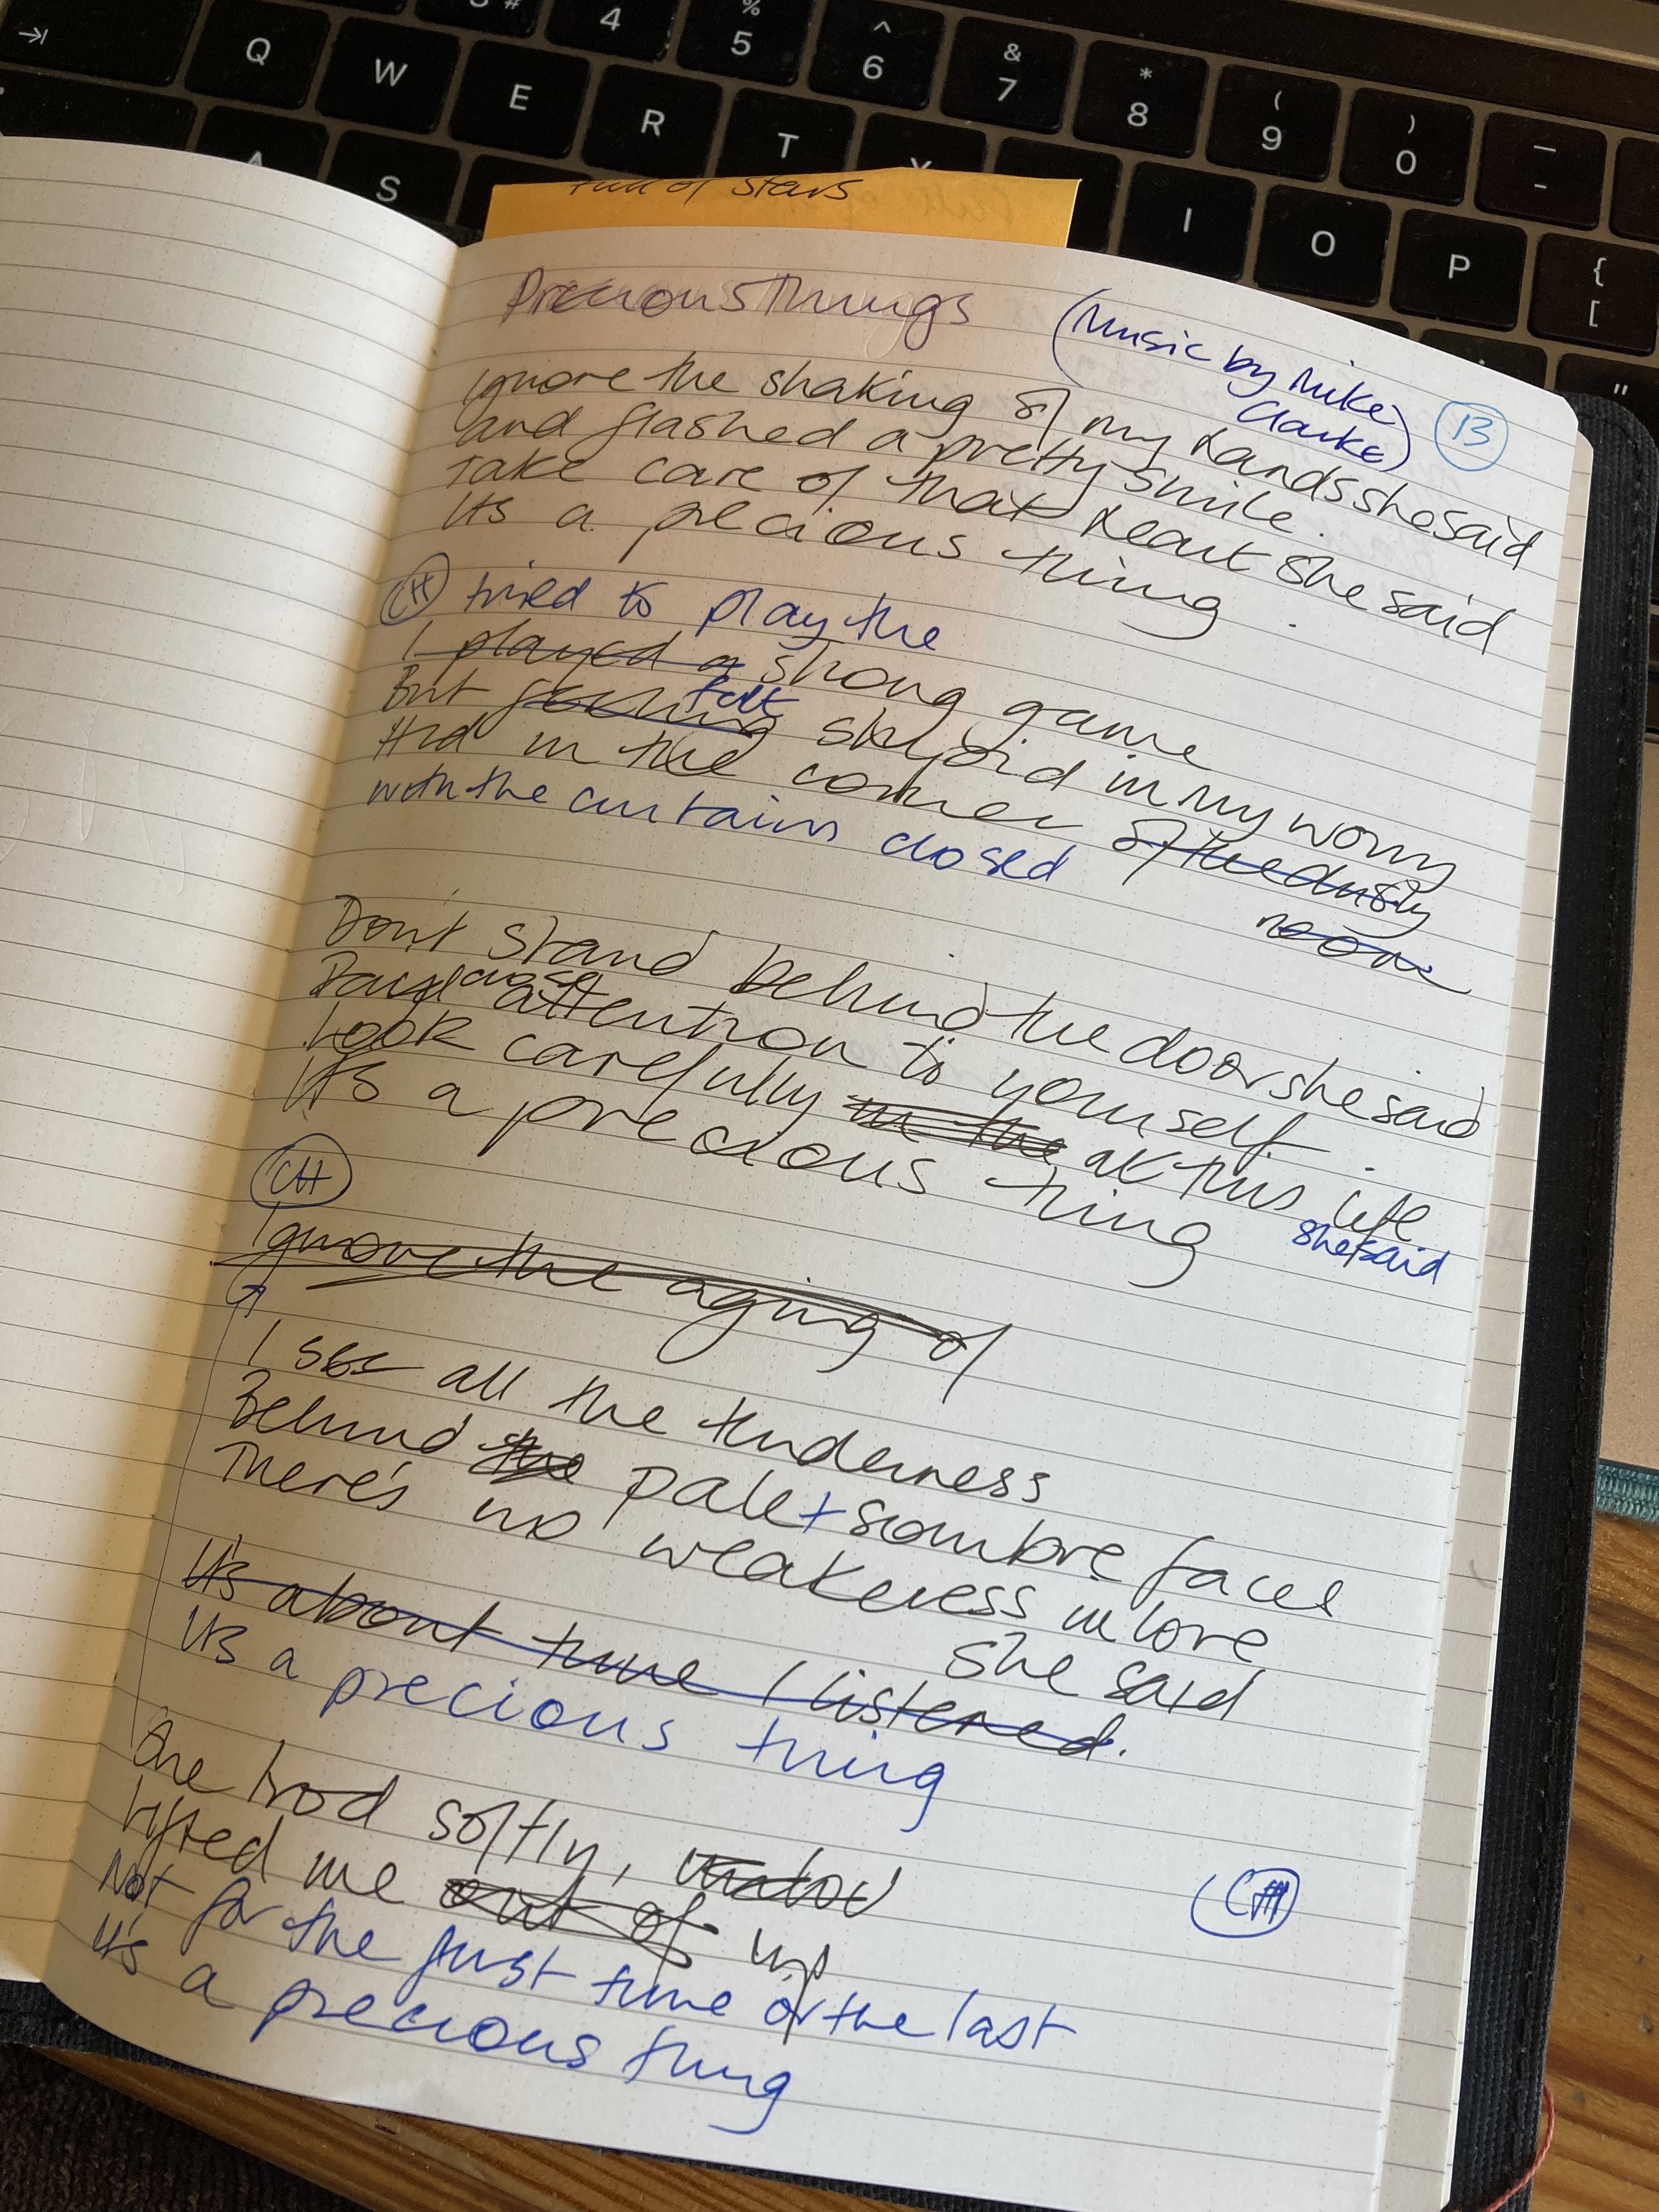 Q W E R T
4 % 5 ^ 6 & 7 * 8 ( 9 ) 0 _ -
A S I O P { [
"
Full of stars
Precious Things
(Music by Mike
Clarke)
13
Ignore the shaking of my hands she said
and flashed a pretty smile.
Take care of that heart she said
It's a precious thing.
CH tried to play the
I played a strong game
But feeling felt stupid in my worry
Hid in the corner of the dusty
room
with the curtains closed
Don't stand behind the door she said
Pay close attention to yourself.
Look carefully in the at this life
she said
It's a precious thing
CH
Ignore the aging of
I see all the tenderness
Behind the pale + sombre faces
There's no weakness in love
she said
It's about time I listened.
It's a precious thing
She trod softly,
Lifted me out of up
Not for the first time or the last
It's a precious thing
CH